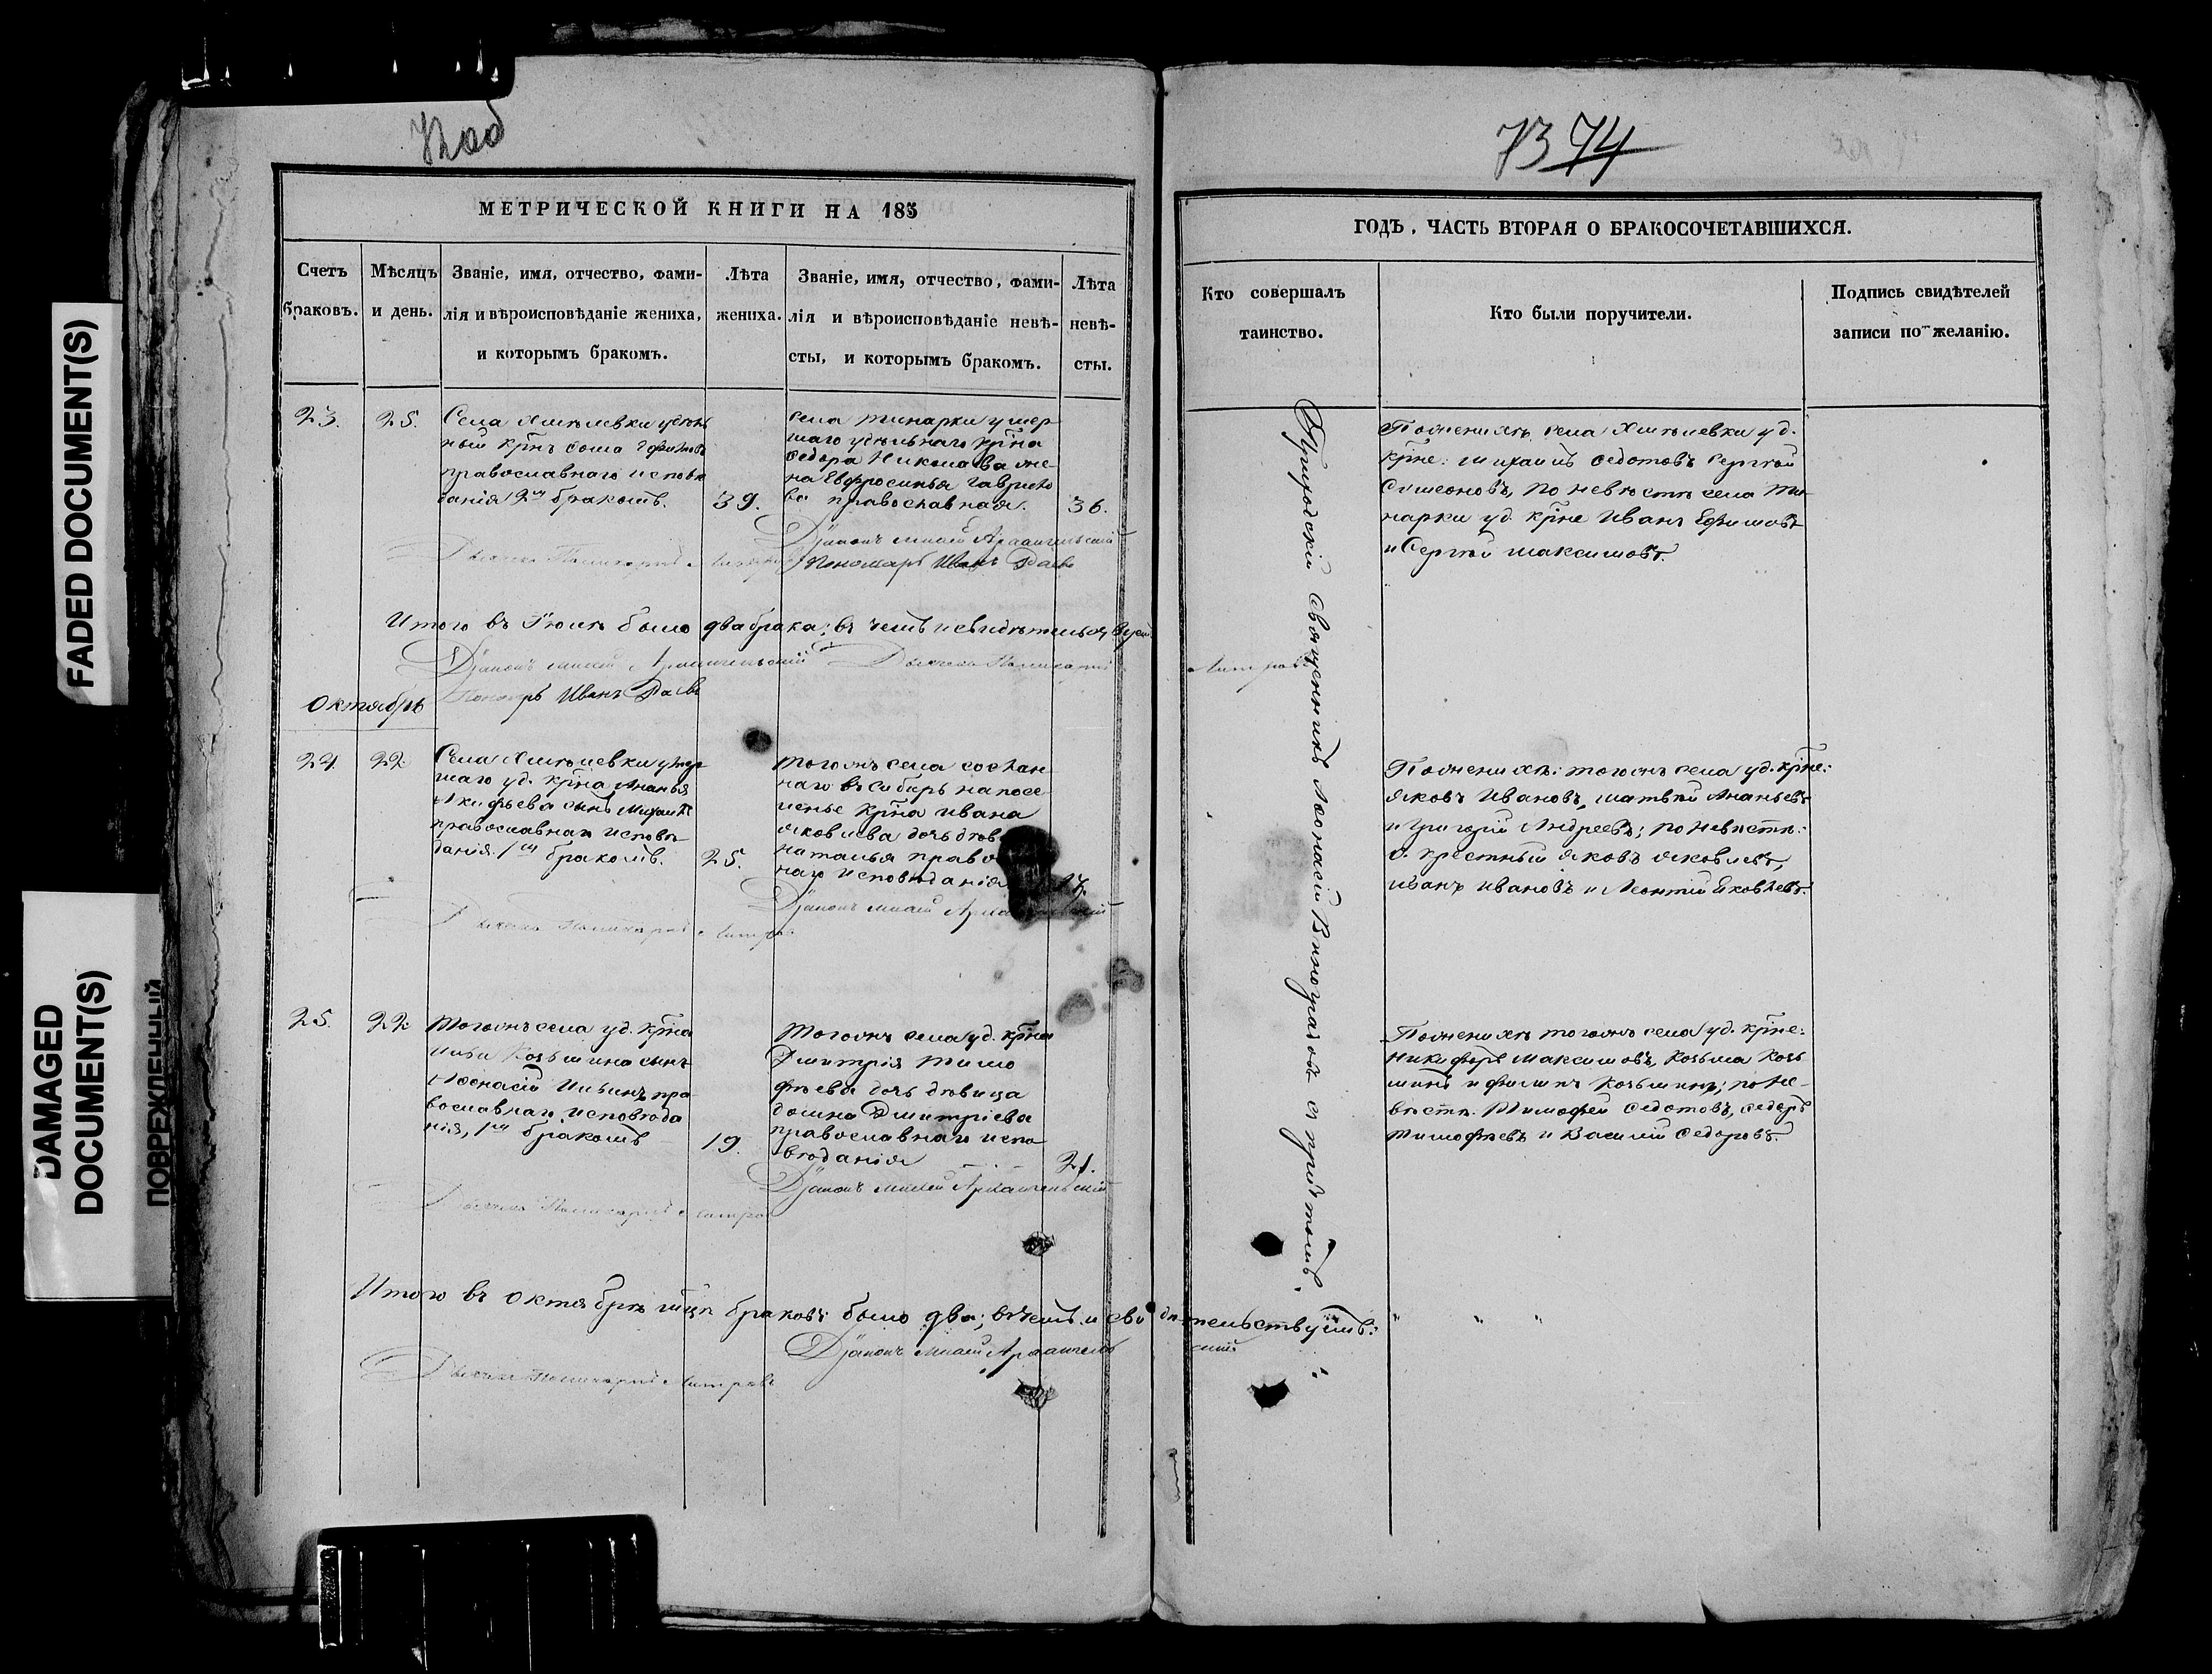 FADED DOCUMENT(S)
DAMAGED
DOCUMENT(S)
ПОВРЕЖДЕННЫЙ
72 об
МЕТРИЧЕСКОЙ КНИГИ НА 185
Счетъ браковъ.
Мѣсяцъ и день.
Званіе, имя, отчество, фами-
лія и вѣроисповѣданіе жениха,
и которымъ бракомъ.
Лѣта
жениха.
Званіе, имя, отчество, фами-
лія и вѣроисповѣданіе невѣ-
сты, и которымъ бракомъ.
Лѣта
невѣ-
сты.
23.
25.
Села Хмѣлевки удѣль
ный крнъ Ѳома
православнаго исповѣ
данія 2мъ бракомъ.
39.
села Тинарки умер
шаго удѣльнаго крна
Ѳедора Николаева же-
на Евфросинья Гаврило
ва православная.
36.
Діаконъ Архангельскій
Дьячекъ Поликарпъ
Пономарь Иванъ
Итого въ Іюлѣ было два брака; въ чемъ и свидѣтельствуемъ
Діаконъ Архангельскій Дьячекъ Поликарпъ
Пономарь Иванъ
Октябрь
24.
22
Села Хмѣлевки умер
шаго уд. крна Ананья
Акифьева сынъ Михаилъ
православнаго исповѣ-
данія. 1мъ бракомъ.
25.
тогожъ села сослан
наго въ Сибирь на посе
ленье крна Ивана
Яковлева дочь дѣв
Наталья право
наго исповѣданія
Діаконъ
Дьячекъ Поликарпъ
25.
22
тогожъ села уд. крна
Ильи Козьмина сынъ
Аѳонасій Ильинъ пра
вославнаго исповѣда
нія, 1мъ бракомъ
19.
тогожъ села уд. крна
Дмитрія Тимо
фѣева дочь дѣвица
Домна Дмитріева
православнаго испо
вѣданія
21.
Діаконъ Архангельскій
Дьячекъ Поликарпъ
Итого въ Октябрѣ мцѣ браковъ было два; въ чемъ и свидѣтельствуемъ:
Діаконъ Архангельскій
Дьячекъ Поликарпъ
73 74
ГОДЪ, ЧАСТЬ ВТОРАЯ О БРАКОСОЧЕТАВШИХСЯ.
Кто совершалъ
таинство.
Кто были поручители.
Подпись свидѣтелей
записи по желанію.
Приходскій священникъ Аѳонасій Виноградовъ съ причтомъ.
По женихѣ села Хмѣлевки уд.
крне: Михаилъ Ѳедотовъ Сергѣй
Симеоновъ, по невѣстѣ села Ти
нарки уд. крне Иванъ Ефимовъ
и Сергѣй Максимовъ.
По женихѣ: тогожъ села уд. крне:
Яковъ Ивановъ, Матвѣй Ананьевъ
и Григорій Андреевъ; по невѣстѣ:
Яковъ Яковлевъ,
Иванъ Ивановъ и Леонтій Яковлевъ.
По женихѣ тогожъ села уд. крне:
Никифоръ Максимовъ, Козьма Козь
минъ и Филипъ Козьминъ; по не-
вѣстѣ. Тимофей Ѳедотовъ, Ѳедоръ
Тимофѣевъ и Василій Ѳедоровъ.